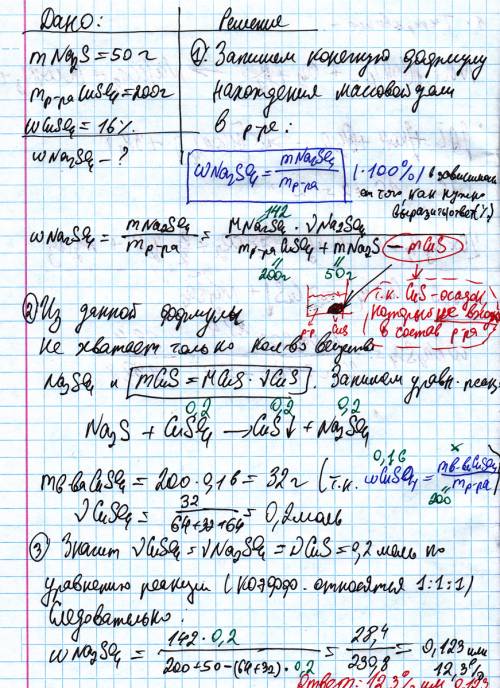 Дано:
Решение
mNa₂S=50г
mр-ра CuSO₄=200г
wCuSO₄=16%
wNa₂SO₄-?
① Запишем конечную формулу
нахождения массовой доли
в р-ре:
wNa₂SO₄ = mNa₂SO₄ / mр-ра (·100%) в зависимости
от того, как нужно
выразить ответ (%)
142
wNa₂SO₄ = mNa₂SO₄ / mр-ра = MNa₂SO₄ · νNa₂SO₄ / mр-ра CuSO₄ + mNa₂S - mCuS
200г 50г
т.к. CuS-осадок,
который не входит
в состав р-ра
р-р CuS
② Из данной формулы
не хватает только кол-во вещества
Na₂SO₄ и mCuS = MCuS · νCuS. Запишем уравн. реакц.
0,2 0,2 0,2
Na₂S + CuSO₄ → CuS↓ + Na₂SO₄
mв-ва CuSO₄ = 200 · 0,16 = 32г (т.к. wCuSO₄ = mв-ва CuSO₄ / mр-ра)
0,16 x 200
νCuSO₄ = 32 / 64+32+64 = 0,2моль
③ Значит νCuSO₄ = νNa₂SO₄ = νCuS = 0,2 моль по
уравнению реакции (коэфф. относятся 1:1:1)
Следовательно:
wNa₂SO₄ = 142 · 0,2 / 200+50-(64+32)·0,2 = 28,4 / 230,8 = 0,123 или
12,3%
Ответ: 12,3% или 0,123